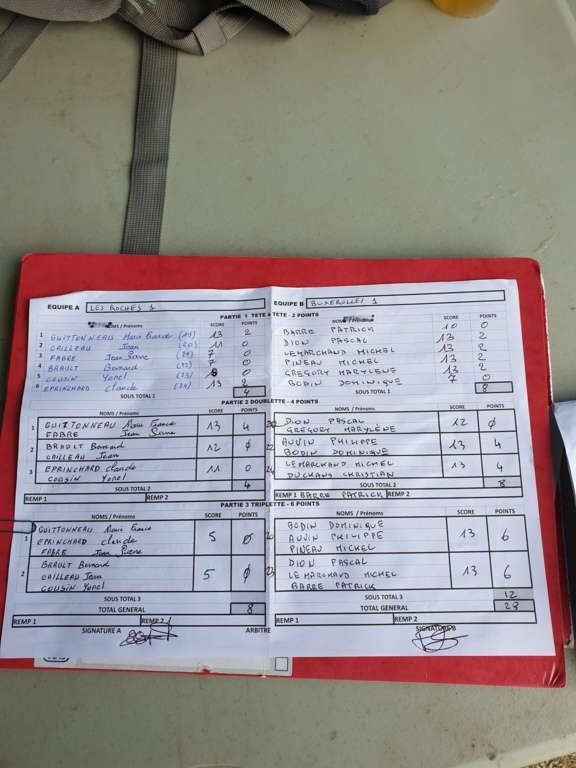 EQUIPE A LES ROCHES 1 EQUIPE B BUXEROLLES 1
PARTIE 1 TETE A TETE - 2 POINTS
NOMS / Prénoms SCORE POINTS SCORE POINTS
1 GUITTONNEAU Marie France 13 2 BARRE PATRICK 10 0
2 CAILLEAU Jean (20) 11 0 DION PASCAL 13 2
3 FABRE Jean Pierre 7 0 LEMARCHAND MICHEL 13 2
4 BRAULT Bernard 7 0 PINEAU MICHEL 13 2
5 COUSIN Yonel 0 GREGORY MARYLENE 13 2
6 EPRINCHARD Claude (24) 13 2 BODIN DOMINIQUE 7 0
SOUS TOTAL 1 4 SOUS TOTAL 1 8
PARTIE 2 DOUBLETTE - 4 POINTS
NOMS / Prénoms SCORE POINTS NOMS / Prénoms SCORE POINTS
1 GUITTONNEAU Marie France 13 4 DION PASCAL 12 0
FABRE Jean Pierre GREGORY MARYLENE
2 BRAULT Bernard 12 0 AUVIN PHILIPPE 13 4
CAILLEAU Jean BODIN DOMINIQUE
3 EPRINCHARD Claude 11 0 LEMARCHAND MICHEL 13 4
COUSIN Yonel DUCHANS CHRISTIAN
SOUS TOTAL 2 4 SOUS TOTAL 2 8
REMP 1 REMP 2 REMP 1 BARRE PATRICK REMP 2
PARTIE 3 TRIPLETTE - 6 POINTS
NOMS / Prénoms SCORE POINTS NOMS / Prénoms SCORE POINTS
1 GUITTONNEAU Marie France BODIN DOMINIQUE
EPRINCHARD Claude 5 0 AUVIN PHILIPPE 13 6
FABRE Jean Pierre PINEAU MICHEL
2 BRAULT Bernard DION PASCAL
CAILLEAU Jean 5 0 LEMARCHAND MICHEL 13 6
COUSIN Yonel BARRE PATRICK
SOUS TOTAL 3 SOUS TOTAL 3 12
TOTAL GENERAL 8 TOTAL GENERAL 28
REMP 1 REMP 2 REMP 1 REMP 2
SIGNATURE A ARBITRE SIGNATURE B